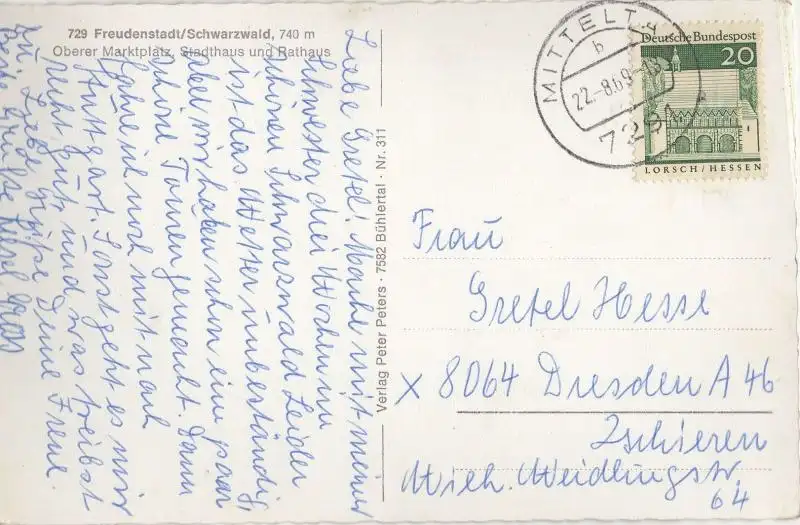 729 Freudenstadt/Schwarzwald, 740 m
Oberer Marktplatz, Stadthaus und Rathaus
Liebe Gretel! Mache mit meiner
Schwester drei Wochen im
schönen Schwarzwald Leider
ist das Wetter unbeständig,
aber wir haben schon ein paar
schöne Touren gemacht. Dann
fahre ich noch mit nach
Stuttgart. Sonst geht es mir
recht gut und was treibst
Du Liebe Grüße Deine Irene.
Beste Grüße Liesel
Verlag Peter Peters · 7582 Bühlertal · Nr. 311
MITTELT
b
22.-8.69-18
7291
Deutsche Bundespost
20
LORSCH/HESSEN
Frau
Gretel Hesse
X 8064 Dresden A 46
Zschieren
Wilh. Weidlingstr.
64